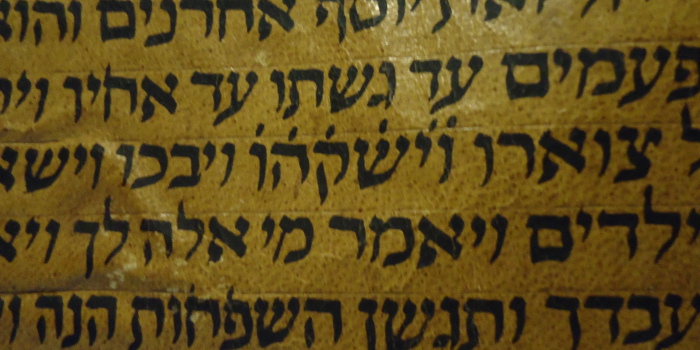 ואת יוסף אחרנים והוא
פעמים עד גשתו עד אחיו
צוארו וׄיׄשׄקׄהׄוׄ ויבכו
ילדים ויאמר מי אלה לך
עבדך ותגשן השפחות הנה